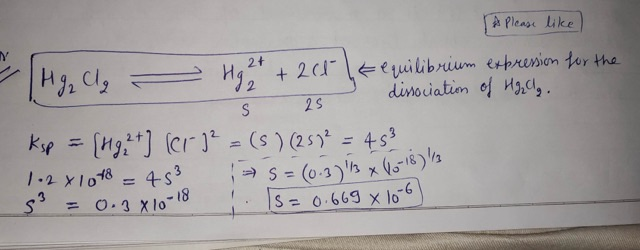 ☆ Please like
Hg₂Cl₂ ⇌ Hg₂²⁺ + 2Cl⁻ ⇐ equilibrium expression for the
S 2S dissociation of Hg₂Cl₂.
Ksp = [Hg₂²⁺] [Cl⁻]² = (S) (2S)² = 4S³
1.2 × 10⁻¹⁸ = 4S³ ⇒ S = (0.3)^1/3 × (10⁻¹⁸)^1/3
S³ = 0.3 × 10⁻¹⁸ S = 0.669 × 10⁻⁶